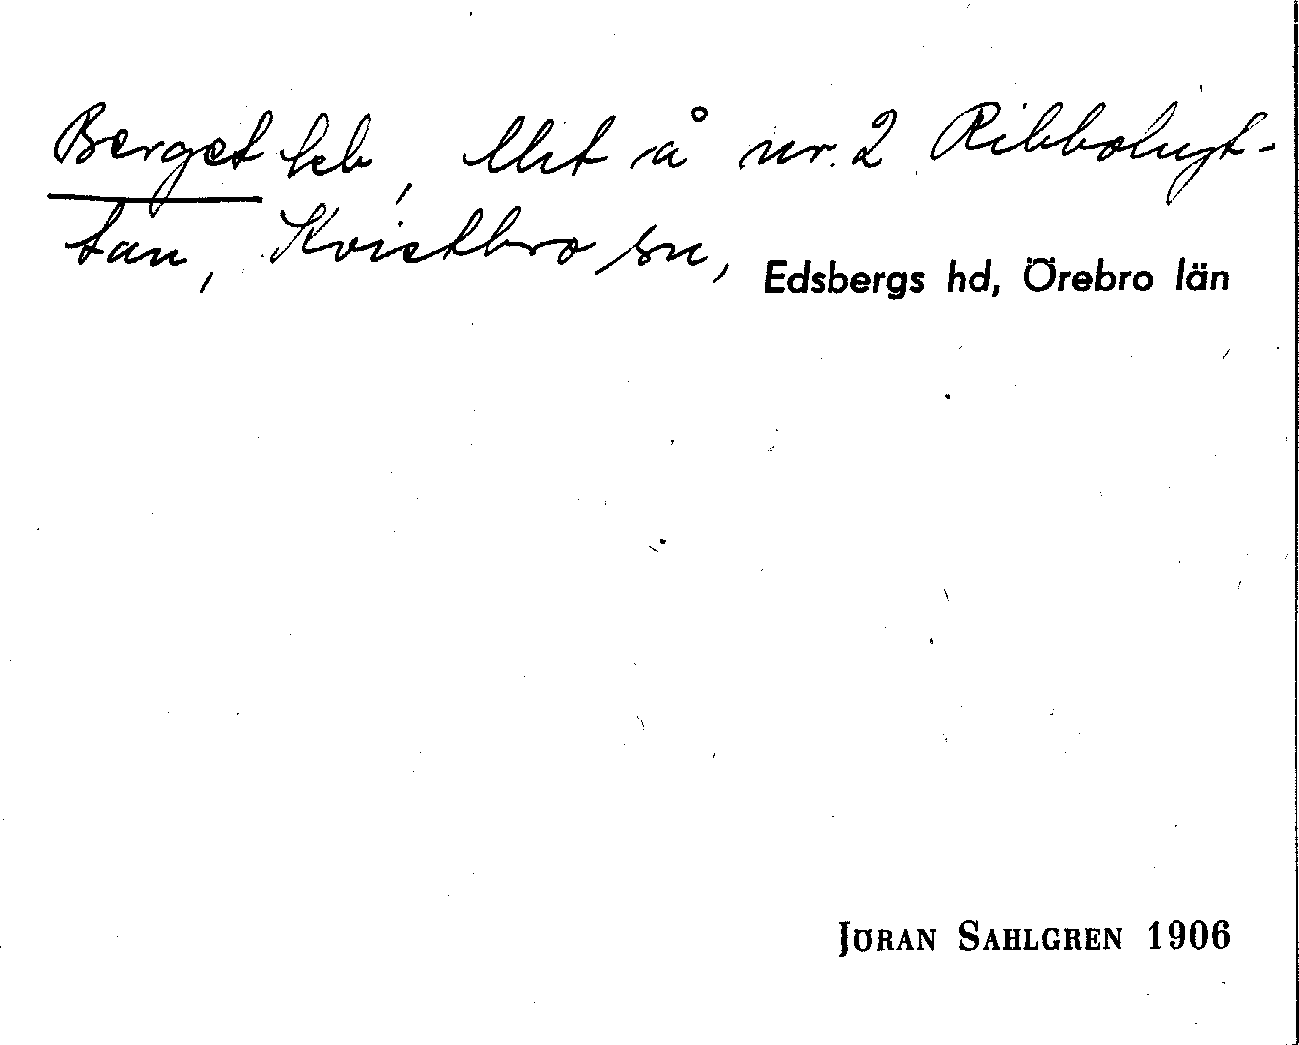 Berget lb, llit å nr. 2 Ribbohyt-
tan, Kvistbro sn, Edsbergs hd, Örebro län
JÖRAN SAHLGREN 1906